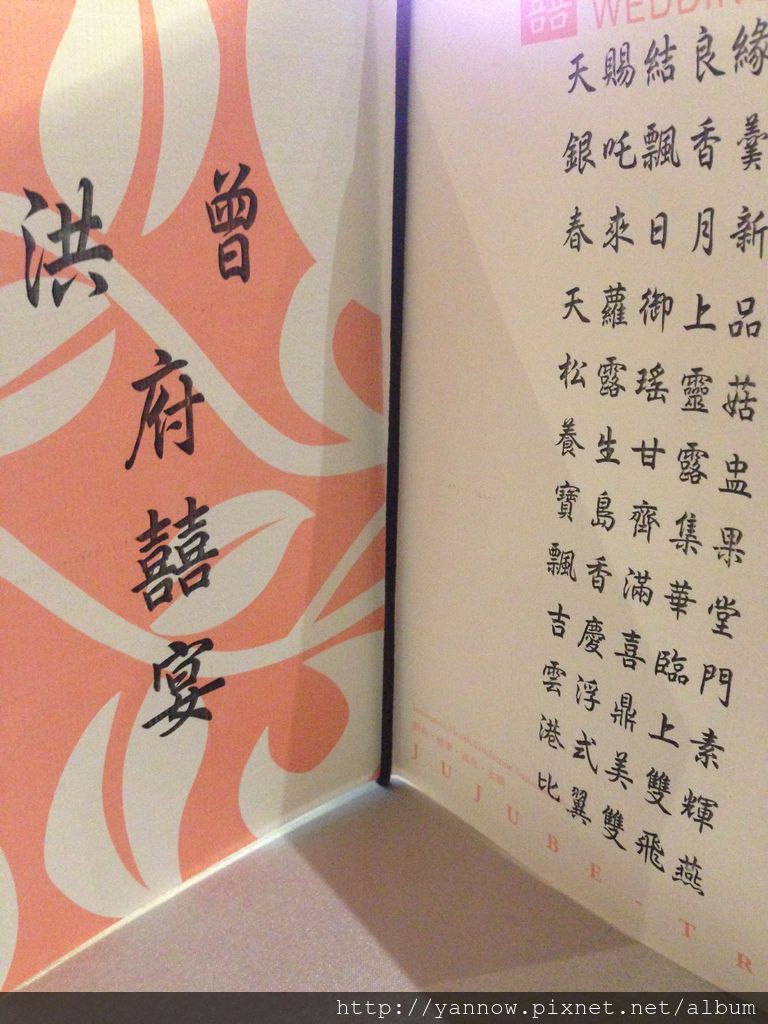 洪 曾
府
囍
宴
囍 WEDDIN
天賜結良緣
銀吒飄香羹
春來日月新
天蘿御上品
松露瑤靈菇
養生甘露盅
寶島齊集果
飄香滿華堂
吉慶喜臨門
雲浮鼎上素
港式美雙輝
比翼雙飛燕
JUJUBE-TR
http://yannow.pixnet.net/album